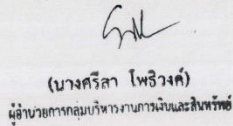 (นางศรีสา โพธิวงค์)
ผู้อำนวยการกลุ่มบริหารงานการเงินและสินทรัพย์